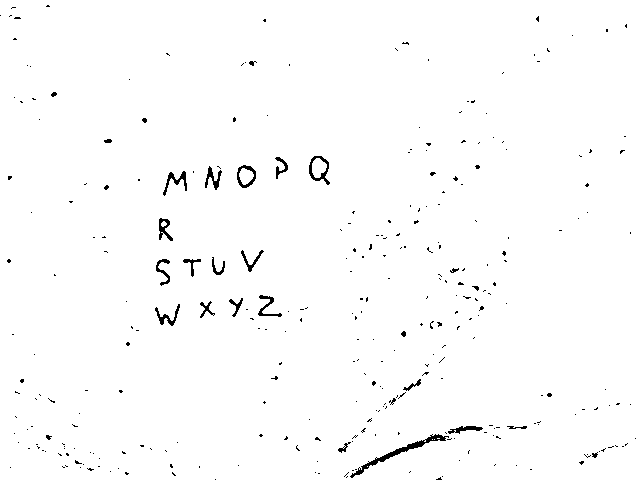 M N O P Q
R
S T U V
W X Y Z